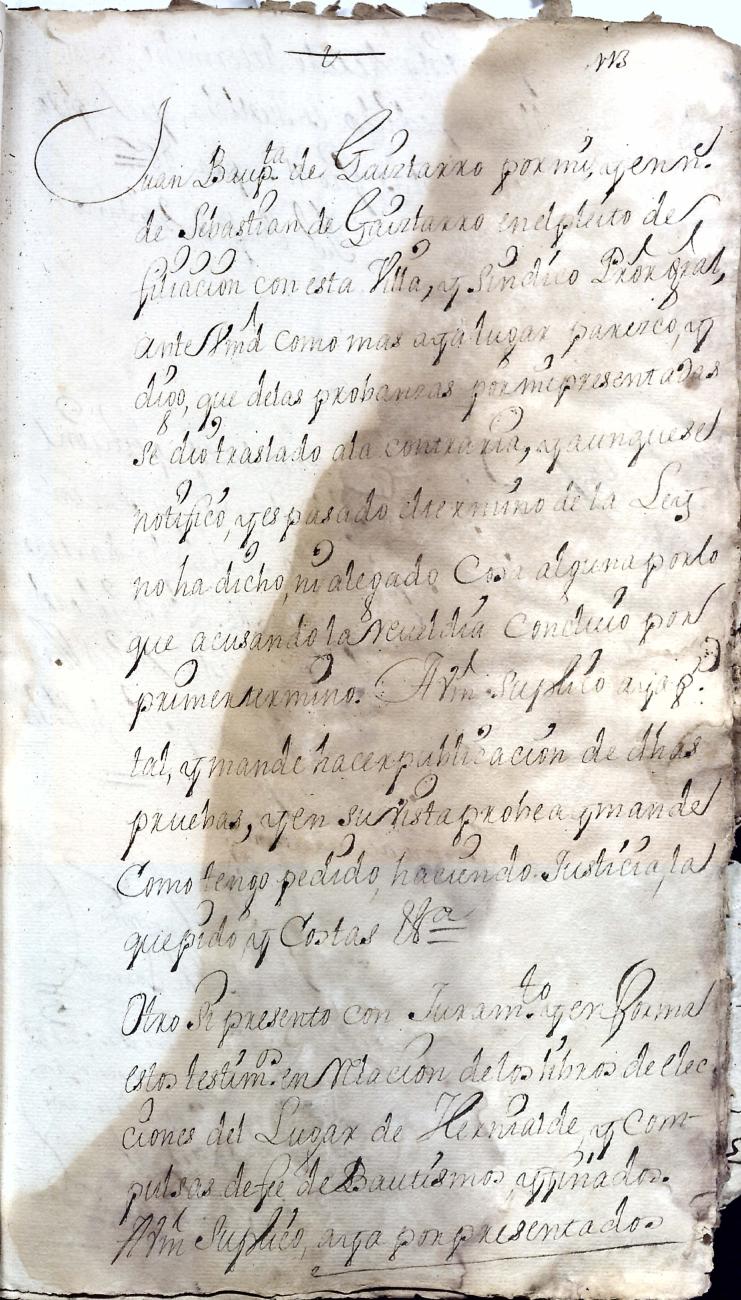 113
Juan Baupta. de Gaiztarro por mi, y en ne.
de Sebastian de Gaiztarro en el pleito de
filiacion con esta Villa, y Sindico Pror. Gral,
ante Vmd como mas aya lugar parezco, y
digo, que de las probanzas por mi presentadas
se dio traslado ala contraria, y aunque se
notifico, y es pasado el termino de la Ley
no ha dicho, ni alegado Cosa alguna por lo
que acusando la reveldia Concluio por
primer termino. A Vm Suplico aya p.
tal, y mande hacer publicacion de dhas
pruebas, y en su vista probea y mande
Como tengo pedido, haciendo Justicia, la
que pido, y Costas &a
Otro Si presento con Juramto. y en forma
estos testimos. en relacion de los libros de elec
ciones del Lugar de Hernialde, y Com-
pulsas de fe de Bautismos, y finados.
A Vm Suplico, aya por presentados